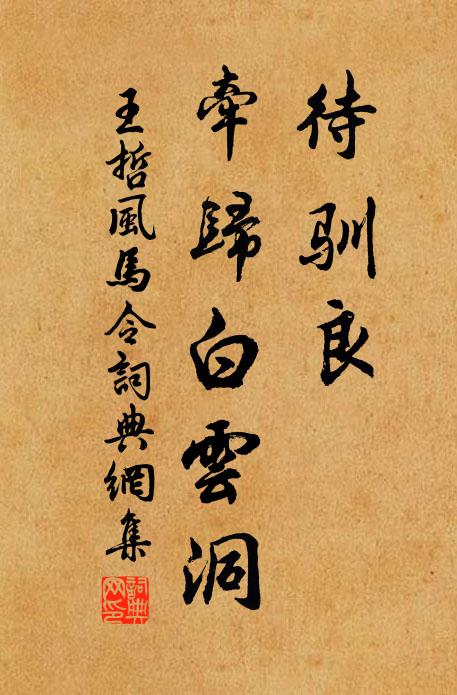 待驯良
牽歸白雲洞
王哲風馬令詞典網集
詞典网印